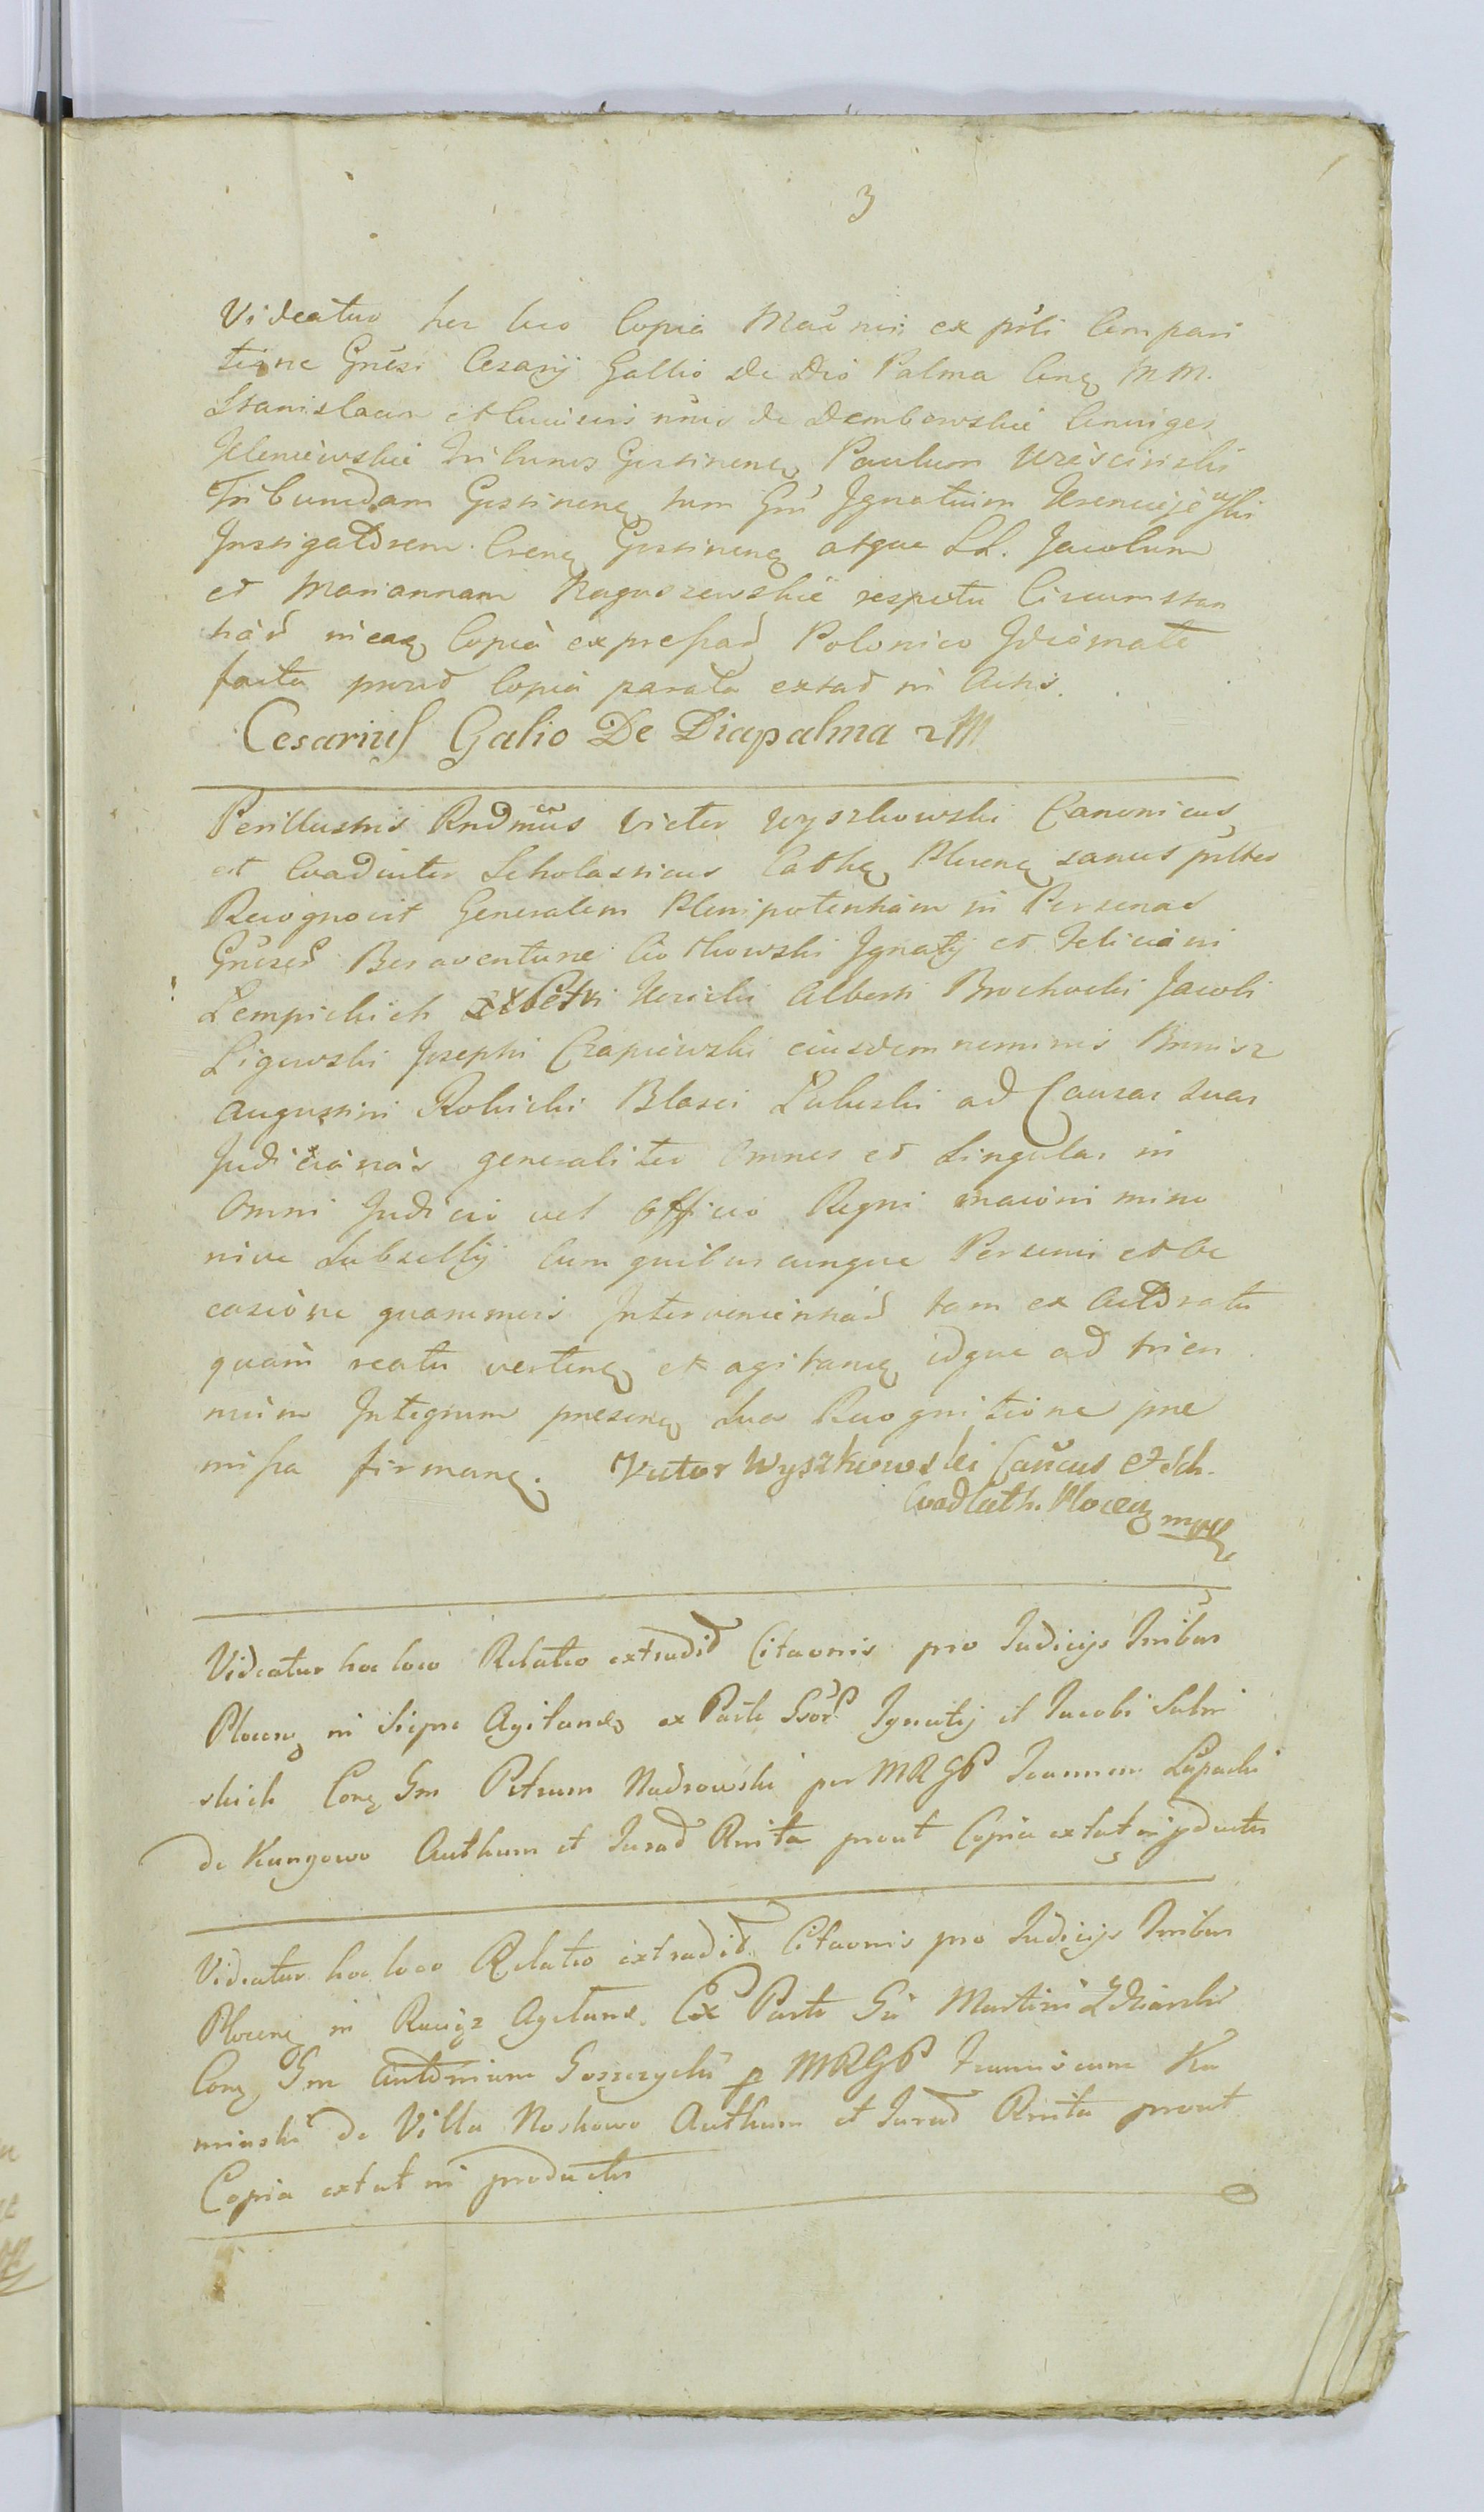 3
Videatur hoc loco Copia Maũnis ex pñti Compari
tione Gñesi Cesarij Gallio de Dio Palma Conꝫ M M.
Stanislaum et de Dembowskie
Jeleniewskie Tribunos Gostinenꝫ Paulum Wzieścinski
Tribunidam Gostinenꝫ tum Gñ Jgnatium
Jnstigatorem Crenꝫ Gostinenꝫ atque LL. Jacobum
et Mariannam Raguszewskie respectu Circumstan
tiaȓ in eaꝫ Copia expressaȓ Polonico Jdiomate
facta prout Copia parata extat in Actis.
Cesarius Galio De Diapalma mM
Perillustris Rndmũs Victor Wyszkowski Canonicus
et Coadiutor Scholasticus Cathꝫ Plocenꝫ sanus pñtes
Recognovit Generalem Plenipotentiam in Personas
Gñesoȓ Bonaventurae Ciothowski Jgnatij et Feliciani
Lempickich Petri Alberti Brochocki Jacobi
Ligowski Josephi Czapiewski eiusdem nominis Bronisz
Augustini Rolicki Blasei Lubeski ad Causas suas
Judiciarias generaliter Omnes et Singulas in
Omni Judicio vel Officio Regni maiori mino
rive Subsellij Cum quibuscunque Personis et Oc
casione quarumvis Jntervenientiaȓ tam ex Actoratu
quam reatu vertenꝫ et agitanꝫ idque ad trien
nium Jntegrum presenꝫ Sua Recognitione pre
missa firmanꝫ. Victor Wyszkowski Cañcus et Sch.
Coad Cath. Plocenꝫ mpp
Videatur hoc loco Relatio extradit Citaonis pro Judicijs Tribus
Plocenꝫ in Sierpc Agitandꝫ ex Parte Gsoȓ Jgnatij et Jacobi
skich Conꝫ Gm Petrum Nadrowski per MRGP Joannem Lipacki
de Kungowo Authum et Jurad Rnita prout Copia extat in pductis
Videatur hoc loco Relatio extradit Citaonis pro Judicijs Tribus
Plocenꝫ in Raciąz Agitand. Ex Parte Gñ Martini Zdziarski
Conꝫ Gm Antonium Goszczycki p MRGP Franciscum Ka
minski de Villa Noskowo Authum et Jurad Rnita prout
Copia extat in productis